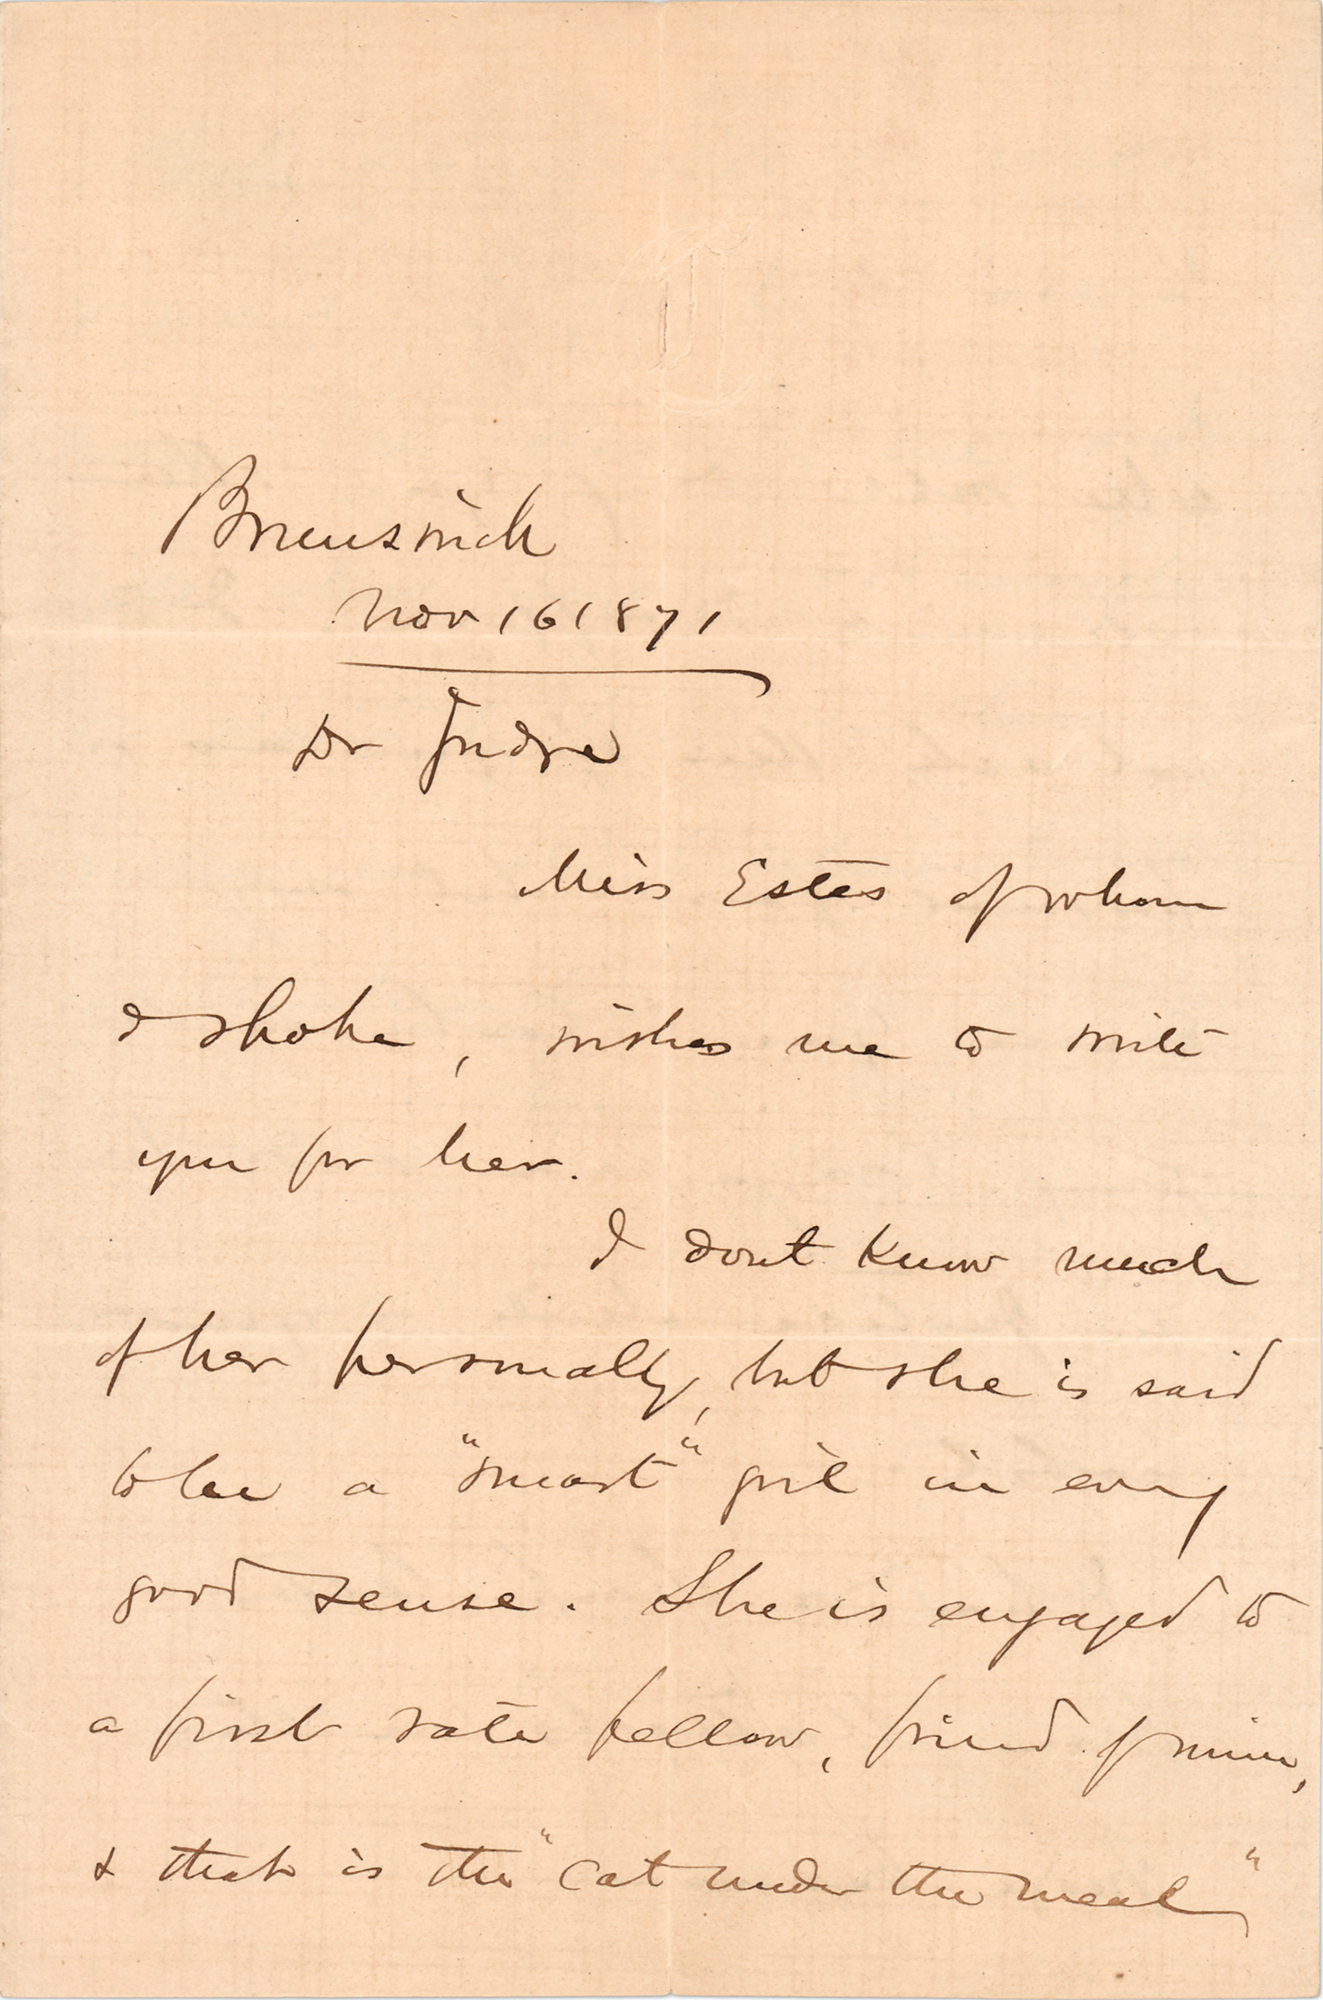 Brunswick
Nov 16 1871
Dr Judge
Miss Estes of whom
I spoke, wishes me to write
you for her.
I dont know much
of her personally, but she is said
to be a "smart" girl in every
good sense. She is engaged to
a first rate fellow, friend of mine,
& that is the "cat under the meal"